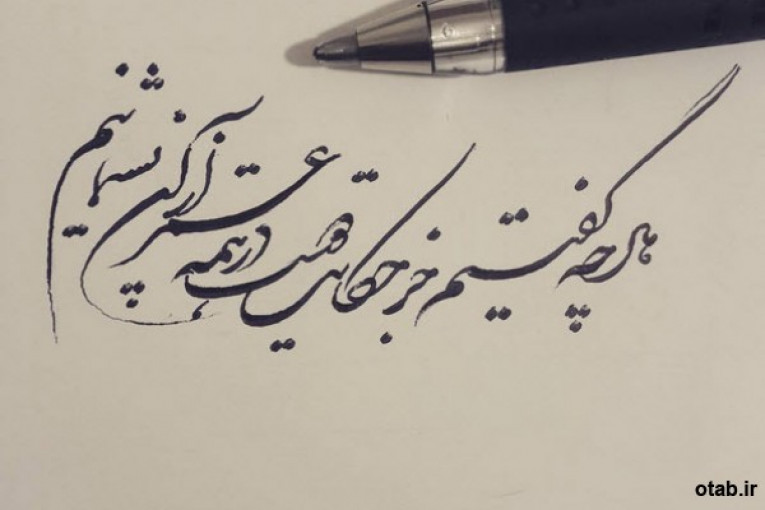 هرچه گفتیم جز حکایت دوست در همه عمر از آن پشیمانیم
otab.ir